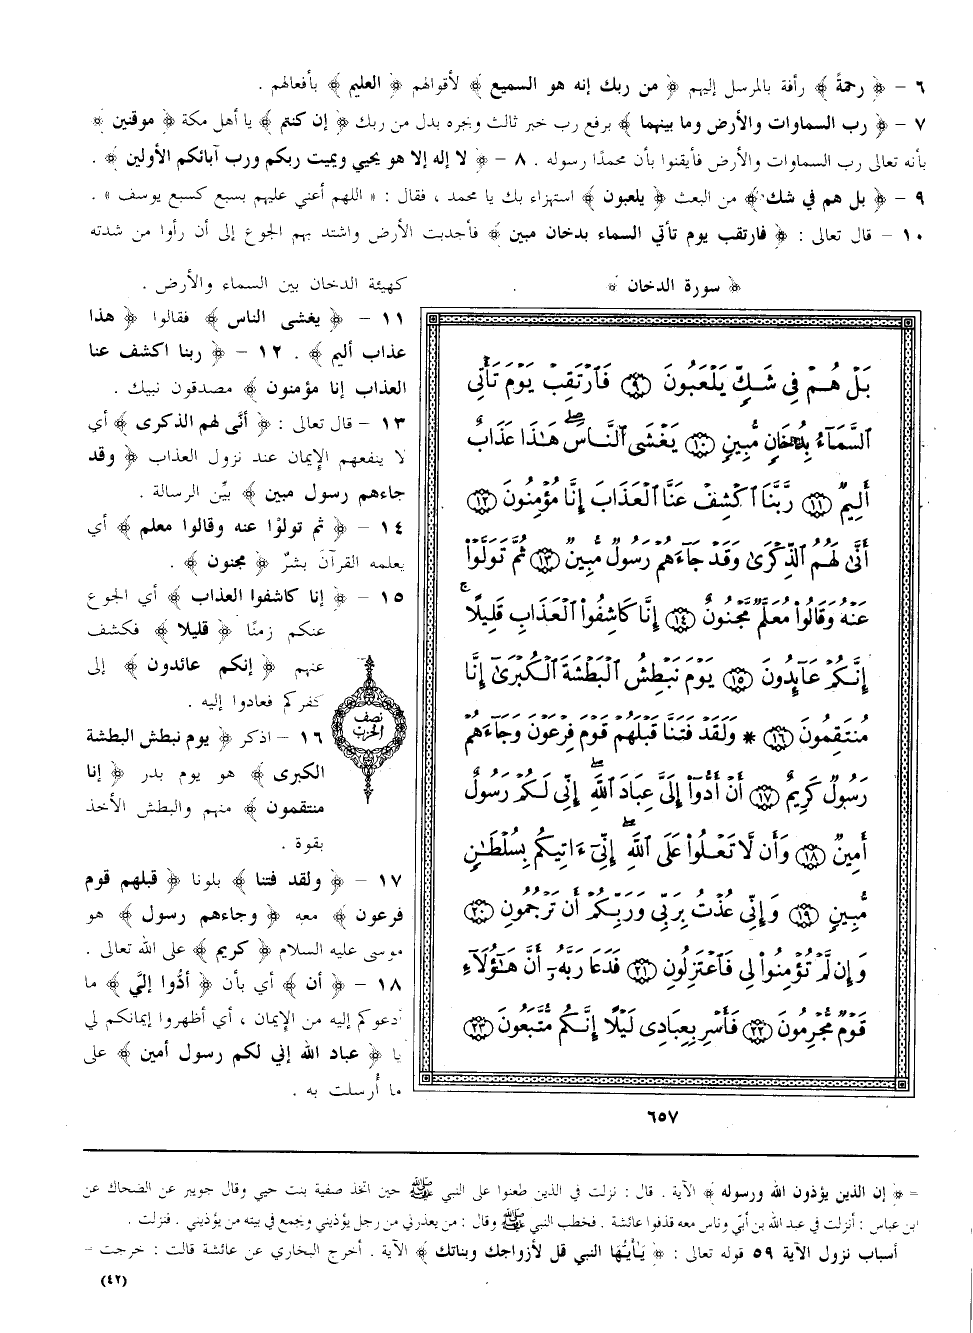 ٦ – ﴿ رحمةً ﴾ رأفة بالمرسل إليهم ﴿ من ربك إنه هو السميع ﴾ لأقوالهم ﴿ العليم ﴾ بأفعالهم .
٧ – ﴿ رب السماوات والأرض وما بينهما ﴾ برفع رب خبر ثالث وبجره بدل من ربك ﴿ إن كنتم ﴾ يا أهل مكة ﴿ موقنين ﴾
بأنه تعالى رب السماوات والأرض فأيقنوا بأن محمدًا رسوله . ٨ – ﴿ لا إله إلا هو يحيي ويميت ربكم ورب آبائكم الأولين ﴾ .
٩ – ﴿ بل هم في شك ﴾ من البعث ﴿ يلعبون ﴾ استهزاء بك يا محمد ، فقال : « اللهم أعني عليهم بسبع كسبع يوسف » .
١٠ – قال تعالى : ﴿ فارتقب يوم تأتي السماء بدخان مبين ﴾ فأجدبت الأرض واشتد بهم الجوع إلى أن رأوا من شدته
كهيئة الدخان بين السماء والأرض .
١١ – ﴿ يغشى الناس ﴾ فقالوا ﴿ هذا
عذاب أليم ﴾ . ١٢ – ﴿ ربنا اكشف عنا
العذاب إنا مؤمنون ﴾ مصدقون نبيك .
١٣ – قال تعالى : ﴿ أنّى لهم الذكرى ﴾ أي
لا ينفعهم الإيمان عند نزول العذاب ﴿ وقد
جاءهم رسول مبين ﴾ بيّن الرسالة .
١٤ – ﴿ ثم تولوْا عنه وقالوا معلم ﴾ أي
يعلمه القرآن بشرٌ ﴿ مجنون ﴾ .
١٥ – ﴿ إنا كاشفوا العذاب ﴾ أي الجوع
عنكم زمنًا ﴿ قليلا ﴾ فكشف
عنهم ﴿ إنكم عائدون ﴾ إلى
كفركم فعادوا إليه .
١٦ – اذكر ﴿ يوم نبطش البطشة
الكبرى ﴾ هو يوم بدر ﴿ إنا
منتقمون ﴾ منهم والبطش الأخذ
بقوة .
١٧ – ﴿ ولقد فتنا ﴾ بلونا ﴿ قبلهم قوم
فرعون ﴾ معه ﴿ وجاءهم رسول ﴾ هو
موسى عليه السلام ﴿ كريم ﴾ على الله تعالى .
١٨ – ﴿ أن ﴾ أي بأن ﴿ أدُّوا إليَّ ﴾ ما
أدعوكم إليه من الإيمان ، أي أظهروا إيمانكم لي
يا ﴿ عباد الله إني لكم رسول أمين ﴾ على
ما أُرسلت به .
نصف
الحزب
﴿ سورة الدخان ﴾
بَلْ هُمْ فِي شَكٍّ يَلْعَبُونَ ٩ فَٱرْتَقِبْ يَوْمَ تَأْتِي
ٱلسَّمَآءُ بِدُخَانٍ مُّبِينٍ ١٠ يَغْشَى ٱلنَّاسَۖ هَٰذَا عَذَابٌ
أَلِيمٌ ١١ رَّبَّنَا ٱكْشِفْ عَنَّا ٱلْعَذَابَ إِنَّا مُؤْمِنُونَ ١٢
أَنَّىٰ لَهُمُ ٱلذِّكْرَىٰ وَقَدْ جَآءَهُمْ رَسُولٌ مُّبِينٌ ١٣ ثُمَّ تَوَلَّوْا۟
عَنْهُ وَقَالُوا۟ مُعَلَّمٌ مَّجْنُونٌ ١٤ إِنَّا كَاشِفُوا۟ ٱلْعَذَابِ قَلِيلًاۚ
إِنَّكُمْ عَآئِدُونَ ١٥ يَوْمَ نَبْطِشُ ٱلْبَطْشَةَ ٱلْكُبْرَىٰٓ إِنَّا
مُنتَقِمُونَ ١٦ * وَلَقَدْ فَتَنَّا قَبْلَهُمْ قَوْمَ فِرْعَوْنَ وَجَآءَهُمْ
رَسُولٌ كَرِيمٌ ١٧ أَنْ أَدُّوٓا۟ إِلَىَّ عِبَادَ ٱللَّهِۖ إِنِّي لَكُمْ رَسُولٌ
أَمِينٌ ١٨ وَأَن لَّا تَعْلُوا۟ عَلَى ٱللَّهِۖ إِنِّيٓ ءَاتِيكُم بِسُلْطَٰنٍ
مُّبِينٍ ١٩ وَإِنِّي عُذْتُ بِرَبِّي وَرَبِّكُمْ أَن تَرْجُمُونِ ٢٠
وَإِن لَّمْ تُؤْمِنُوا۟ لِي فَٱعْتَزِلُونِ ٢١ فَدَعَا رَبَّهُۥٓ أَنَّ هَٰٓؤُلَآءِ
قَوْمٌ مُّجْرِمُونَ ٢٢ فَأَسْرِ بِعِبَادِي لَيْلًا إِنَّكُم مُّتَّبَعُونَ ٢٣
٦٥٧
= ﴿ إن الذين يؤذون الله ورسوله ﴾ الآية . قال : نزلت في الذين طعنوا على النبي ﷺ حين اتخذ صفية بنت حيي وقال جويبر عن الضحاك عن
ابن عباس : أنزلت في عبد الله بن أبيّ وناس معه قذفوا عائشة . فخطب النبي ﷺ وقال : من يعذرني من رجل يؤذيني ويجمع في بيته من يؤذيني . فنزلت .
أسباب نزول الآية ٥٩ قوله تعالى : ﴿ يٰأيها النبي قل لأزواجك وبناتك ﴾ الآية . أخرج البخاري عن عائشة قالت : خرجت =
(٤٢)